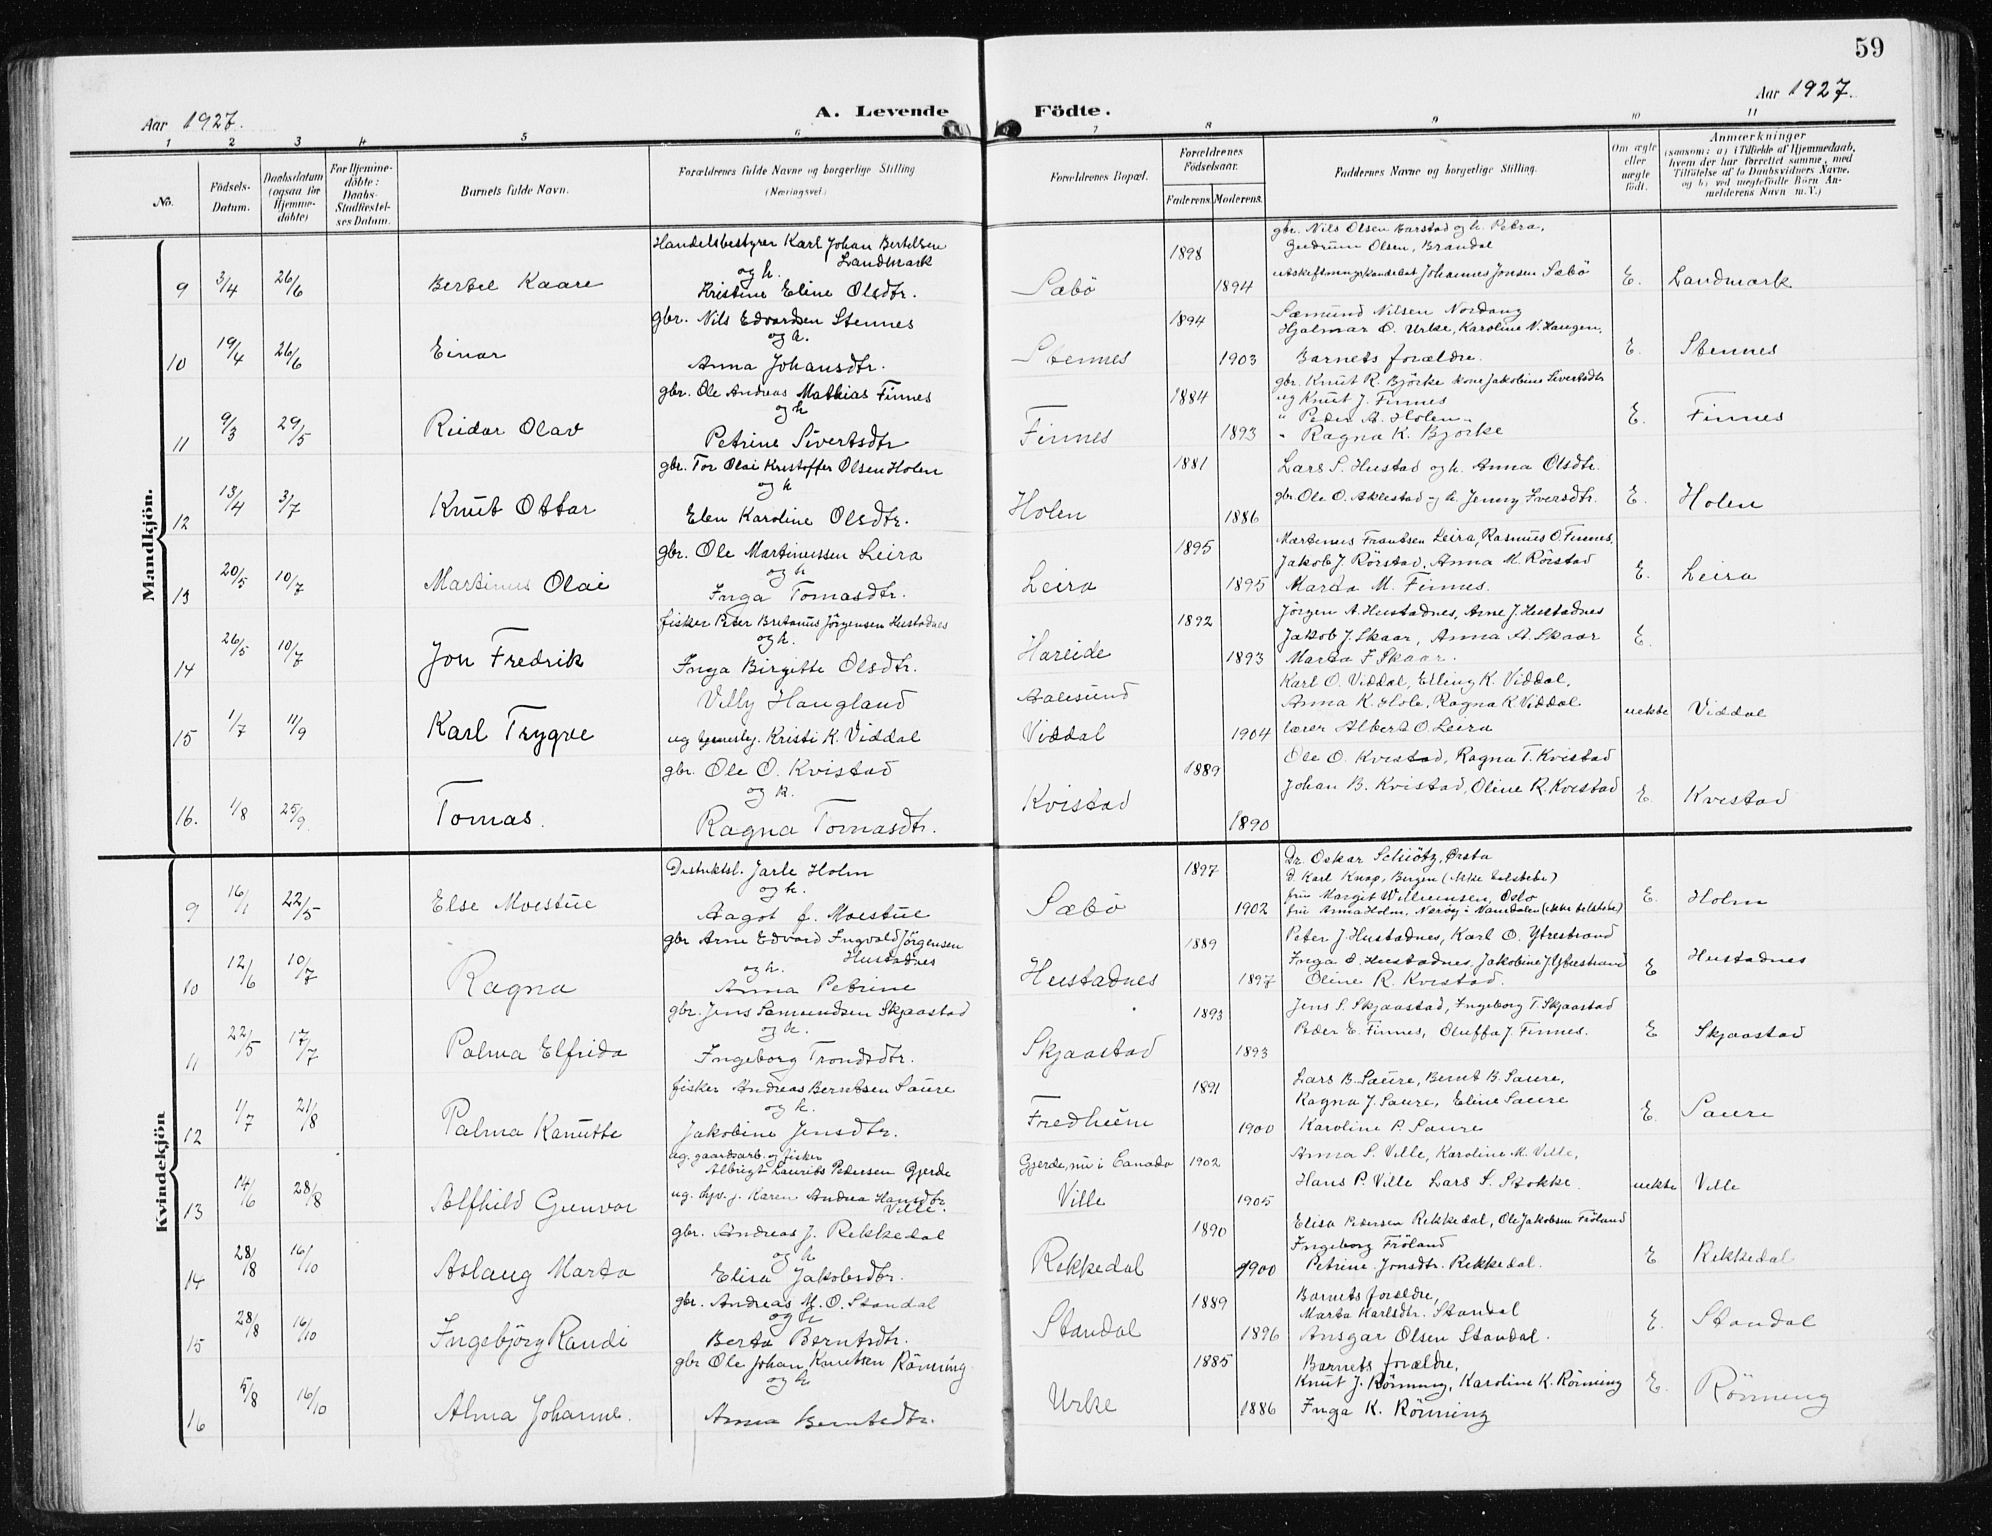 59
Aar 1927.
A. Levende
Födte.
Aar 1927.
1 2 3 4 5 6 7 8 9 10 11
No.
Födsels-Datum.
Daabsdatum (ogsaa for Hjemmedöbte)
For Hjemmedöbte: Daabs-Stadfæstelses Datum.
Barnets fulde Navn.
Forældrenes fulde Navne og borgerlige Stilling
(Næringsvei.)
Forældrenes Bopæl.
Forældrenes Födselsaar.
Faderens. Moderens.
Faddernes Navne og borgerlige Stilling.
Om ægte eller uægte födt.
Anmærkninger
(saasom: a) i Tilfælde af Hjemmedaab, hvem der har forrettet samme, med Tilföielse af to Daabsvidners Navne, og b) ved uægtefödte Börn Anmelderens Navn m.V.)
Mandkjön.
Handelsbestyrer Karl Johan Bertelsen Landmark
1898
gbr. Nils Olsen Barstad og h. Petra,
Gudrum Olsen, Brandal
9 3/4 26/6 Bertel Kaare
og h.
Kristine Eline Olsdtr.
Sæbö
1894
Utskiftningskandidat Johannes Jonsen Sæbö
E. Landmark
gbr. Nils Edvardsen Stennes
1894
Sæmund Nilsen Nordang
Hjalmar O. Urke, Karoline N. Haugen,
10 19/4 26/6 Einar
og h.
Anna Johansdtr.
Stennes
1903
Barnets forældre.
E. Stennes
gbr. Ole Andreas Mathias Finnes
1884
gbr. Knut R. Björke kone Jakobine Sivertsdtr
ug Knut J. Finnes
11 9/3 29/5 Reidar Olav
og h
Petrine Sivertsdtr
Finnes
1893
" Peder A. Holen
" Ragna K. Bjorke
E. Finnes
gbr. Tor Olai Kristoffer Olsen Holen
1881
Lars S. Hustad og h. Anna Olsdtr.
12 13/4 3/7 Knut Ottar
og h
Elen Karoline Olsdtr.
Holen
1886
gbr. Ole O. Aklestad og h. Jenny Iversdtr.
E. Holen
gbr. Ole Martinussen Leira
1895
Martinus Frantsen Leira, Rasmus O. Finnes,
Jakob J. Rörstad, Anna M. Rörstad
13 20/5 10/7 Martinus Olai
og h
Inga Tomasdtr.
Leira
1895
Marta M. Finnes.
E. Leira
fisker Peter Bretanus Jörgensen Hustadnes
1892
Jörgen A. Hustadnes, Arne J. Hustadnes
Jakob J. Skaar, Anna A. Skaar
14 26/5 10/7 Jon Fredrik
og h.
Inga Birgitte Olsdtr.
Hareide
1893
Marta J Skaar.
E.
Villy Haugland
Aalesund
Karl O. Viddal, Elling K. Viddal,
Anna K. Hole, Ragna K Viddal
15 1/7 11/9 Karl Trygve
ug Kristi K. Viddal
Viddal
1904
lærer Albert O. Leira
uekte Viddal
gbr. Ole O. Kvistad
1889
Ole O. Kvistad, Ragna T. Kvistad
16. 1/8 25/9 Tomas.
og h.
Ragna Tomasdtr.
Kvistad
1890
Johan B. Kvistad, Oline R. Kvistad
E. Kvistad
Kvindekjön
Distriktsl. Jarle Holm
1897
Dr. Oskar Schiötz, Ørsta
D. Karl Knap, Bergen (ikke tilstede)
9 16/1 22/5 Else Moestue
og h.
Aagot f. Moestue
Sæbö
1902
fru Margit Willumsen, Oslo
fru Anna Holm, Næröy i Namdalen (ikke tilstede)
E. Holm
gbr Arne Edvard Ingvald Jörgensen Hustadnes
1889
Peter J. Hustadnes, Karl O. Ytrestrand
Inga O. Hustadnes, Jakobine J Ytrestrand
10 12/6 10/7 Ragna
og h.
Anna Petrine
Hustadnes
1897
Oline R. Kvistad.
E Hustadnes
gbr. Jens Samundsen Skjaastad
1893
Jens S. Skjaastad, Ingeborg T. Skjaastad
11 22/5 17/7 Palma Elfrida
og h.
Ingeborg Trondsdtr.
Skjaastad
1893
Peder E. Finnes, Oluffa J. Finnes.
E Skjaastad
fisker Andreas Berntsen Saure
1891
Lars B. Saure, Bernt B. Saure,
Ragna J. Saure, Eline Saure
12 1/7 21/8 Palma Kanutte
og h.
Jakobine Jensdtr.
Fredheim
1900
Karoline P. Saure
E. Saure
ug. gaardsarb. og fisker
Albrigt Laurits Pedersen Gjerde
Gjerde, nu i Canada
1902
Anna S. Ville, Karoline M. Ville,
13 14/6 28/8 Alfhild Gunvor
ug. Karen Andrea Hansdtr. Ville.
Ville
1905
Hans P. Ville Lars S. Stokke.
uekte Ville
gbr. Andreas J. Rekkedal
1890
Elisa Pedersen Rekkedal, Ole Jakobsen Fröland
Ingeborg Fröland
14 28/8 16/10 Aslaug Marta
og h
Elisa Jakobsdtr.
Rekkedal
1900
Petrine Jonsdtr. Rekkedal.
E Rekkedal
gbr. Andreas M. O. Standal
1889
Barnets forældre,
Marta Karlsdtr. Standal
15 28/8 16/10 Ingebjörg Randi
og h
Berta Berntsdtr.
Standal
1896
Ansgar Olsen Standal.
E. Standal
gbr Ole Johan Knutsen Rönning
1885
Barnets forældre,
Knut J. Rönning, Karoline K. Rönning
16 5/8 16/10 Alma Johanne.
og h
Anna Berntsdtr.
Urke
1886
Inga K. Rönning
E. Rönning